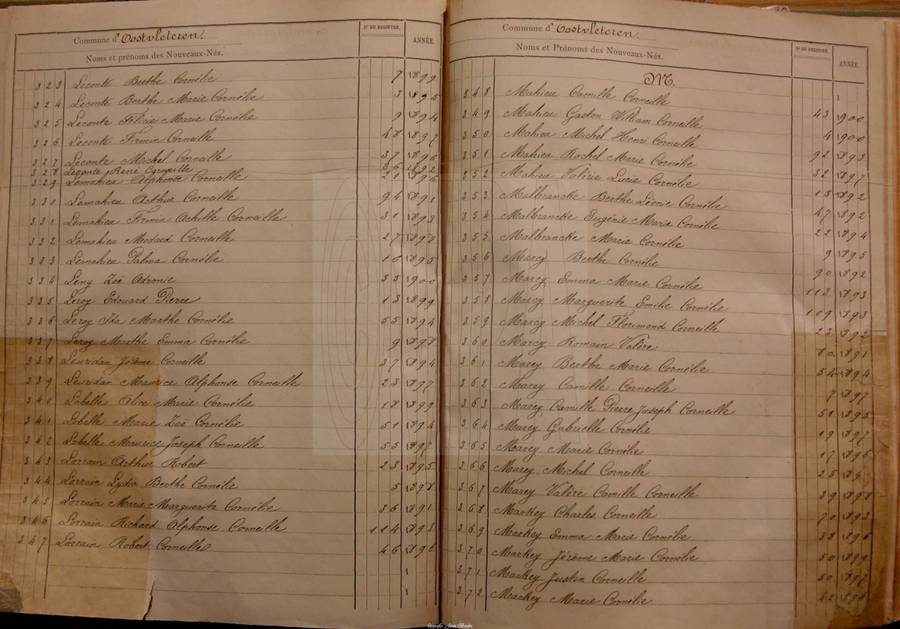 Commune d'Oostvleteren.
Noms et prénoms des Nouveaux-Nés. N° DU REGISTRE. ANNÉE.
323 Leconte Berthe Cornélie 7 1899
324 Leconte Berthe Marie Cornélie 3 1895
325 Leconte Félicie Marie Cornélie 9 1894
326 Leconte Firmin Corneille 48 1897
327 Leconte Michel Corneille 37 1896
328 Leconte René Corneille
329 Lemahieu Alphonse Corneille 1896
330 Lemahieu Arthur Corneille 94 1891
331 Lemahieu Firmin Achille Corneille 31 1893
332 Lemahieu Médard Corneille 27 1898
333 Lemahieu Palma Cornélie 16 1895
334 Leny Zoé 35 1900
335 Leroy Edouard Pierre 13 1899
336 Leroy Ida Marthe Cornélie 55 1894
337 Leroy Marthe Emma Cornélie 9 1898
338 Leuridan Jérôme Corneille 37 1894
339 Leuridan Maurice Alphonse Corneille 23 1897
340 Lobelle Aline Marie Cornélie 18 1899
341 Lobelle Marie Zoé Cornélie 51 1894
342 Lobelle Maurice Joseph Corneille 55 1897
343 Lorrain Arthur Robert 23 1895
344 Lorrain Lydia Berthe Cornélie 5 1898
345 Lorrain Marie Marguerite Cornélie 36 1891
346 Lorrain Richard Alphonse Corneille 114 1893
347 Lorrain Robert Corneille 46 1896
Commune d'Oostvleteren.
Noms et Prénoms des Nouveaux-Nés. N° DU REGISTRE. ANNÉE.
M.
348 Mahieu Camille Corneille
349 Mahieu Gaston William Corneille 43 1900
350 Mahieu Michel Henri Corneille 4 1900
351 Mahieu Rachel Marie Cornélie 92 1893
352 Mahieu Valérie Lucie Cornélie 32 1897
353 Malbrancke Berthe Léonie Cornélie 18 1892
354 Malbrancke Eugénie Marie Cornélie 47 1892
355 Malbrancke Marie Cornélie 22 1894
356 Marcy Berthe Cornélie 9 1895
357 Marcy Emma Marie Cornélie 90 1892
358 Marcy Marguerite Emilie Cornélie 113 1893
359 Marcy Michel Florimond Corneille 109 1893
360 Marcy Romain Valère 23 1892
361 Marcy Berthe Marie Cornélie 1891
362 Marey Camille Corneille 54 1894
363 Marey Camille Pierre Joseph Corneille 7 1897
364 Marey Gabrielle Cornélie 51 1895
365 Marey Marie Cornélie 19 1897
366 Marey Michel Corneille 17 1896
367 Marey Valère Camille Corneille
368 Markey Charles Corneille 39 1898
369 Markey Emma Marie Cornélie 70 1893
370 Markey Jérôme Marie Cornélie 38 1896
371 Markey Justin Corneille 50 1899
372 Markey Marie Cornélie